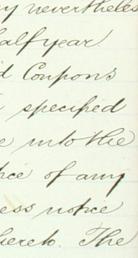 y nevertheles
half year
d Coupons
specified
e into the
nce of any
ess notice
hereto. The